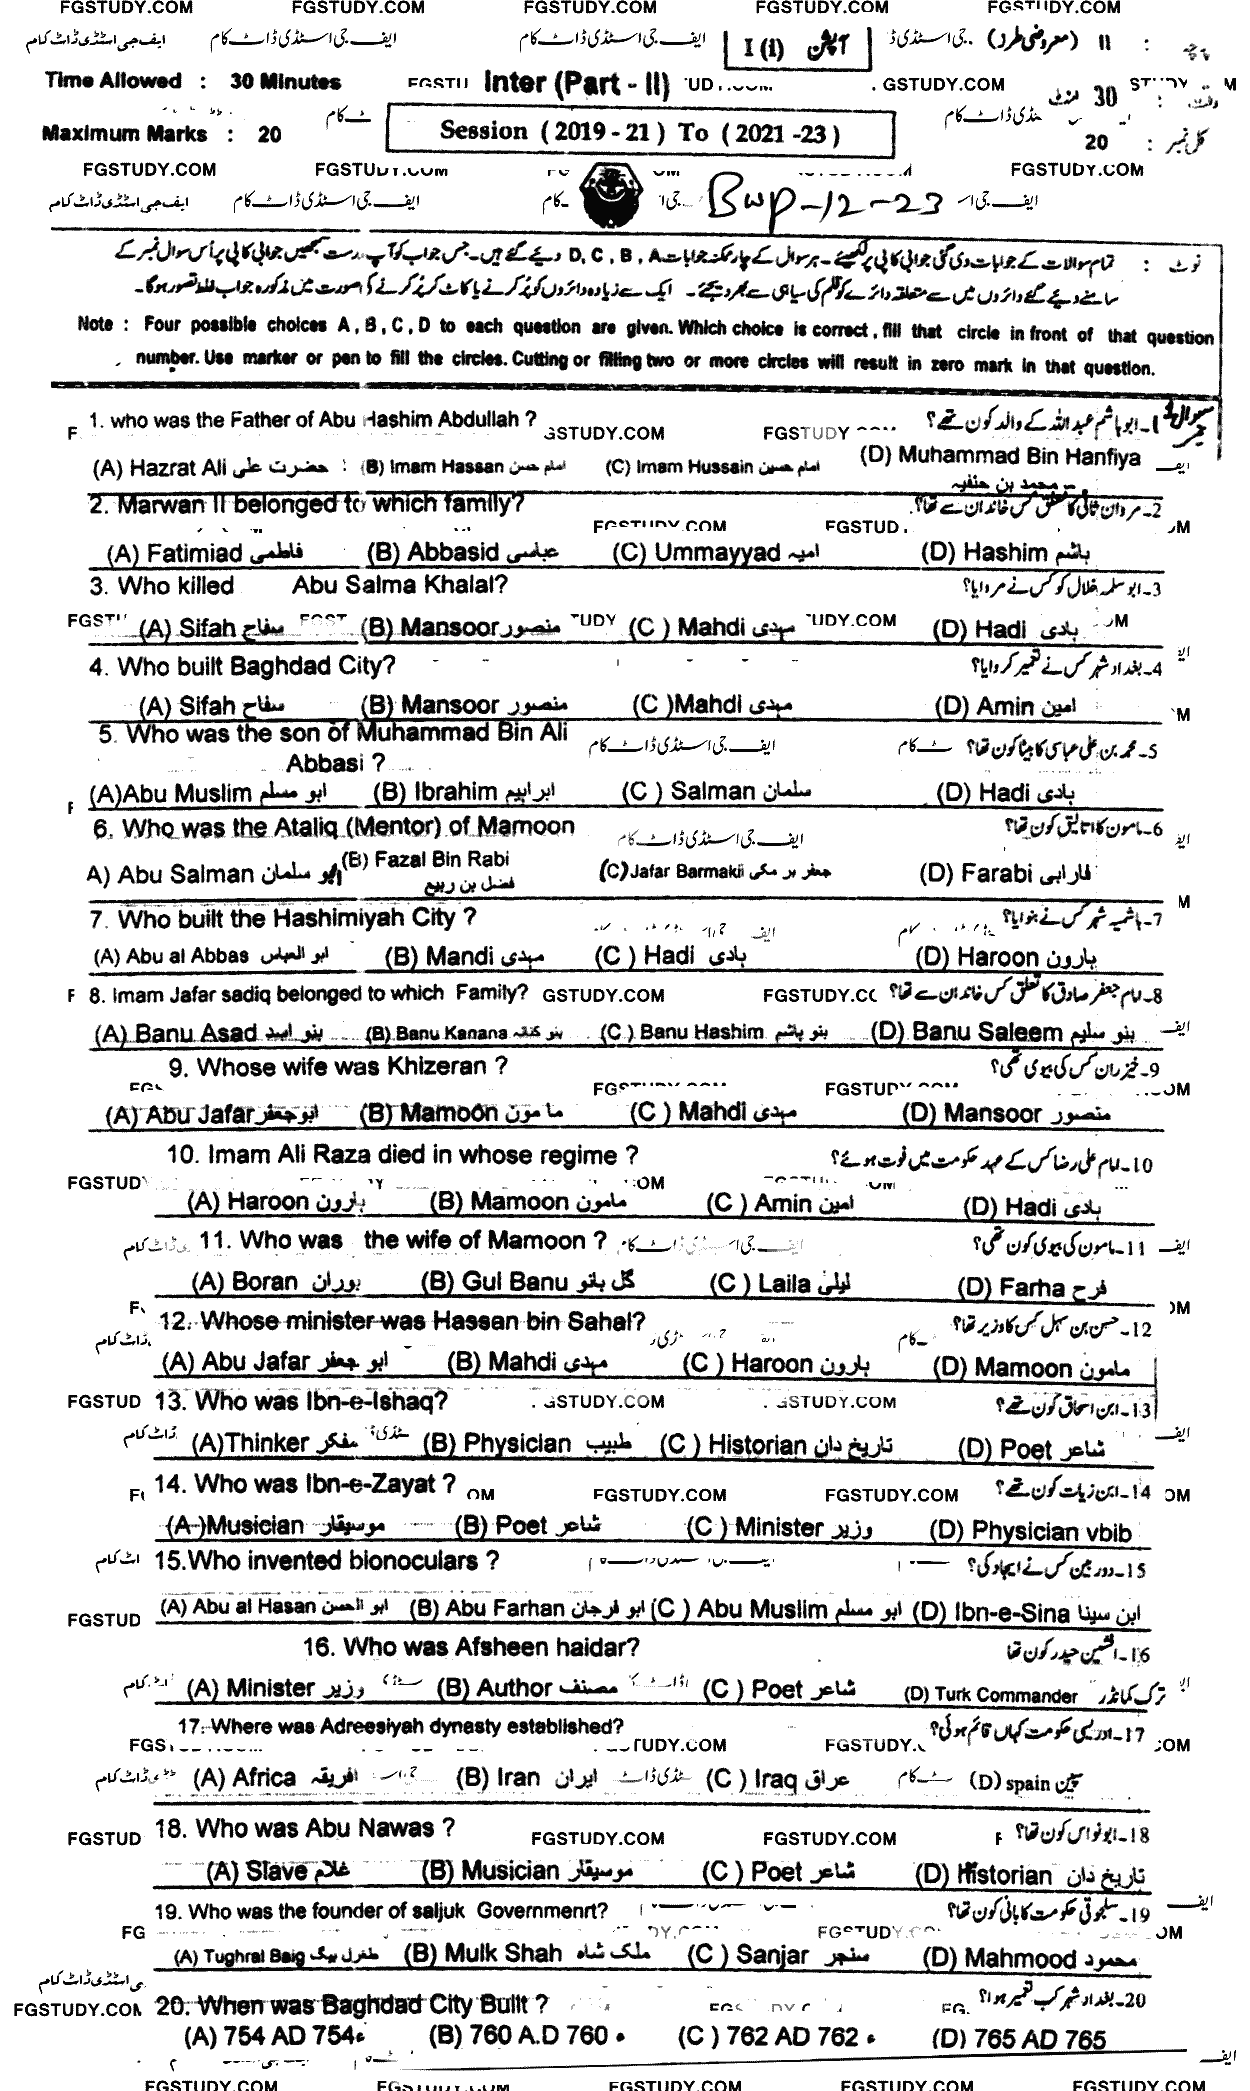 FGSTUDY.COM FGSTUDY.COM FGSTUDY.COM FGSTUDY.COM FGSTUDY.COM
ایف جی اسٹڈی ڈاٹ کام ایف جی اسٹڈی ڈاٹ کام ایف جی اسٹڈی ڈاٹ کام I (i) آپشن II (معروضی طرز) پرچہ :
Time Allowed : 30 Minutes Inter (Part - II) GSTUDY.COM 30 منٹ وقت :
Maximum Marks : 20 Session ( 2019 - 21 ) To ( 2021 -23 ) 20 کل نمبر :
FGSTUDY.COM FGSTUDY.COM FGSTUDY.COM
ایف جی اسٹڈی ڈاٹ کام ایف جی اسٹڈی ڈاٹ کام Bwp-12-23
نوٹ : تمام سوالات کے جوابات دی گئی جوابی کاپی پر لکھیئے۔ ہر سوال کے چار ممکنہ جوابات D, C, B, A دیئے گئے ہیں۔ جس جواب کو آپ درست سمجھیں جوابی کاپی پر اُس سوال نمبر کے
سامنے دیئے گئے دائروں میں سے متعلقہ دائرے کو قلم کی سیاہی سے بھر دیجیئے۔ ایک سے زیادہ دائروں کو پُر کرنے یا کاٹ کر پُر کرنے کی صورت میں مذکورہ جواب غلط تصور ہوگا۔
Note : Four possible choices A , B , C , D to each question are given. Which choice is correct , fill that circle in front of that question
number. Use marker or pen to fill the circles. Cutting or filling two or more circles will result in zero mark in that question.
سوال نمبر 1
1. who was the Father of Abu Hashim Abdullah ? 1۔ ابو ہاشم عبداللہ کے والد کون تھے؟
(A) Hazrat Ali حضرت علی (B) Imam Hassan امام حسن (C) Imam Hussain امام حسین (D) Muhammad Bin Hanfiya محمد بن حنفیہ
2. Marwan II belonged to which family? 2۔ مروان ثانی کا تعلق کس خاندان سے تھا؟
(A) Fatimiad فاطمی (B) Abbasid عباسی (C) Ummayyad امیہ (D) Hashim ہاشم
3. Who killed Abu Salma Khalal? 3۔ ابو سلمہ خلال کو کس نے مروایا؟
(A) Sifah سفاح (B) Mansoor منصور (C ) Mahdi مہدی (D) Hadi ہادی
4. Who built Baghdad City? 4۔ بغداد شہر کس نے تعمیر کروایا؟
(A) Sifah سفاح (B) Mansoor منصور (C )Mahdi مہدی (D) Amin امین
5. Who was the son of Muhammad Bin Ali 5۔ محمد بن علی عباسی کا بیٹا کون تھا؟
Abbasi ?
(A)Abu Muslim ابو مسلم (B) Ibrahim ابراہیم (C ) Salman سلمان (D) Hadi ہادی
6. Who was the Ataliq (Mentor) of Mamoon 6۔ مامون کا اتالیق کون تھا؟
A) Abu Salman ابو سلمان (B) Fazal Bin Rabi فضل بن ربیع (C)Jafar Barmakii جعفر بر مکی (D) Farabi فارابی
7. Who built the Hashimiyah City ? 7۔ ہاشمیہ شہر کس نے بنوایا؟
(A) Abu al Abbas ابو العباس (B) Mandi مہدی (C ) Hadi ہادی (D) Haroon ہارون
8. Imam Jafar sadiq belonged to which Family? 8۔ امام جعفر صادق کا تعلق کس خاندان سے تھا؟
(A) Banu Asad بنو اسد (B) Banu Kanana بنو کنانہ (C ) Banu Hashim بنو ہاشم (D) Banu Saleem بنو سلیم
9. Whose wife was Khizeran ? 9۔ خیزران کس کی بیوی تھی؟
(A) Abu Jafar ابوجعفر (B) Mamoon مامون (C ) Mahdi مہدی (D) Mansoor منصور
10. Imam Ali Raza died in whose regime ? 10۔ امام علی رضا کس کے عہد حکومت میں فوت ہوئے؟
(A) Haroon ہارون (B) Mamoon مامون (C ) Amin امین (D) Hadi ہادی
11. Who was the wife of Mamoon ? 11۔ مامون کی بیوی کون تھی؟
(A) Boran بوران (B) Gul Banu گل بانو (C ) Laila لیلیٰ (D) Farha فرح
12. Whose minister was Hassan bin Sahal? 12۔ حسن بن سہل کس کا وزیر تھا؟
(A) Abu Jafar ابو جعفر (B) Mahdi مہدی (C ) Haroon ہارون (D) Mamoon مامون
13. Who was Ibn-e-Ishaq? 13۔ ابن اسحاق کون تھے؟
(A)Thinker مفکر (B) Physician طبیب (C ) Historian تاریخ دان (D) Poet شاعر
14. Who was Ibn-e-Zayat ? 14۔ ابن زیات کون تھے؟
(A )Musician موسیقار (B) Poet شاعر (C ) Minister وزیر (D) Physician vbib
15.Who invented bionoculars ? 15۔ دوربین کس نے ایجاد کی؟
(A) Abu al Hasan ابو الحسن (B) Abu Farhan ابو فرحان (C ) Abu Muslim ابو مسلم (D) Ibn-e-Sina ابن سینا
16. Who was Afsheen haidar? 16۔ افشین حیدر کون تھا
(A) Minister وزیر (B) Author مصنف (C ) Poet شاعر (D) Turk Commander ترک کمانڈر
17. Where was Adreesiyah dynasty established? 17۔ ادریسی حکومت کہاں قائم ہوئی؟
(A) Africa افریقہ (B) Iran ایران (C ) Iraq عراق (D) spain سپین
18. Who was Abu Nawas ? 18۔ ابونواس کون تھا؟
(A) Slave غلام (B) Musician موسیقار (C ) Poet شاعر (D) Historian تاریخ دان
19. Who was the founder of saljuk Governmenrt? 19۔ سلجوقی حکومت کا بانی کون تھا؟
(A) Tughral Baig طغرل بیگ (B) Mulk Shah ملک شاہ (C ) Sanjar سنجر (D) Mahmood محمود
20. When was Baghdad City Built ? 20۔ بغداد شہر کب تعمیر ہوا؟
(A) 754 AD 754ء (B) 760 A.D 760ء (C ) 762 AD 762ء (D) 765 AD 765
FGSTUDY.COM FGSTUDY.COM FGSTUDY.COM FGSTUDY.COM